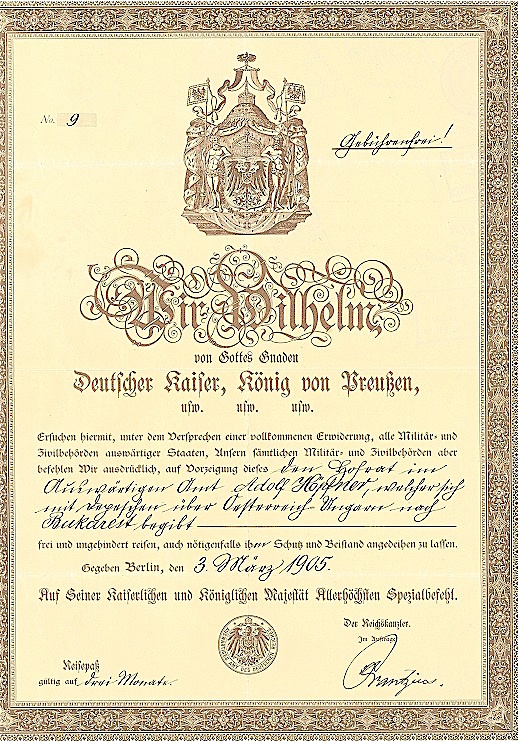 No. 9
Gebührenfrei!
Wir Wilhelm,
von Gottes Gnaden
Deutscher Kaiser, König von Preußen,
usw. usw. usw.
Ersuchen hiermit, unter dem Versprechen einer vollkommenen Erwiderung, alle Militär- und
Zivilbehörden auswärtiger Staaten, Unsern sämtlichen Militär- und Zivilbehörden aber
befehlen Wir ausdrücklich, auf Vorzeigung dieses den Hofrat im
Auswärtigen Amt Adolf Höpfner, welcher sich
mit Depeschen über Oesterreich-Ungarn nach
Bukarest begibt
frei und ungehindert reisen, auch nötigenfalls ihm Schutz und Beistand angedeihen zu lassen.
Gegeben Berlin, den 3. März 1905.
Auf Seiner Kaiserlichen und Königlichen Majestät Allerhöchsten Spezialbefehl.
Der Reichskanzler.
Im Auftrage
Reisepaß
gültig auf drei Monate.